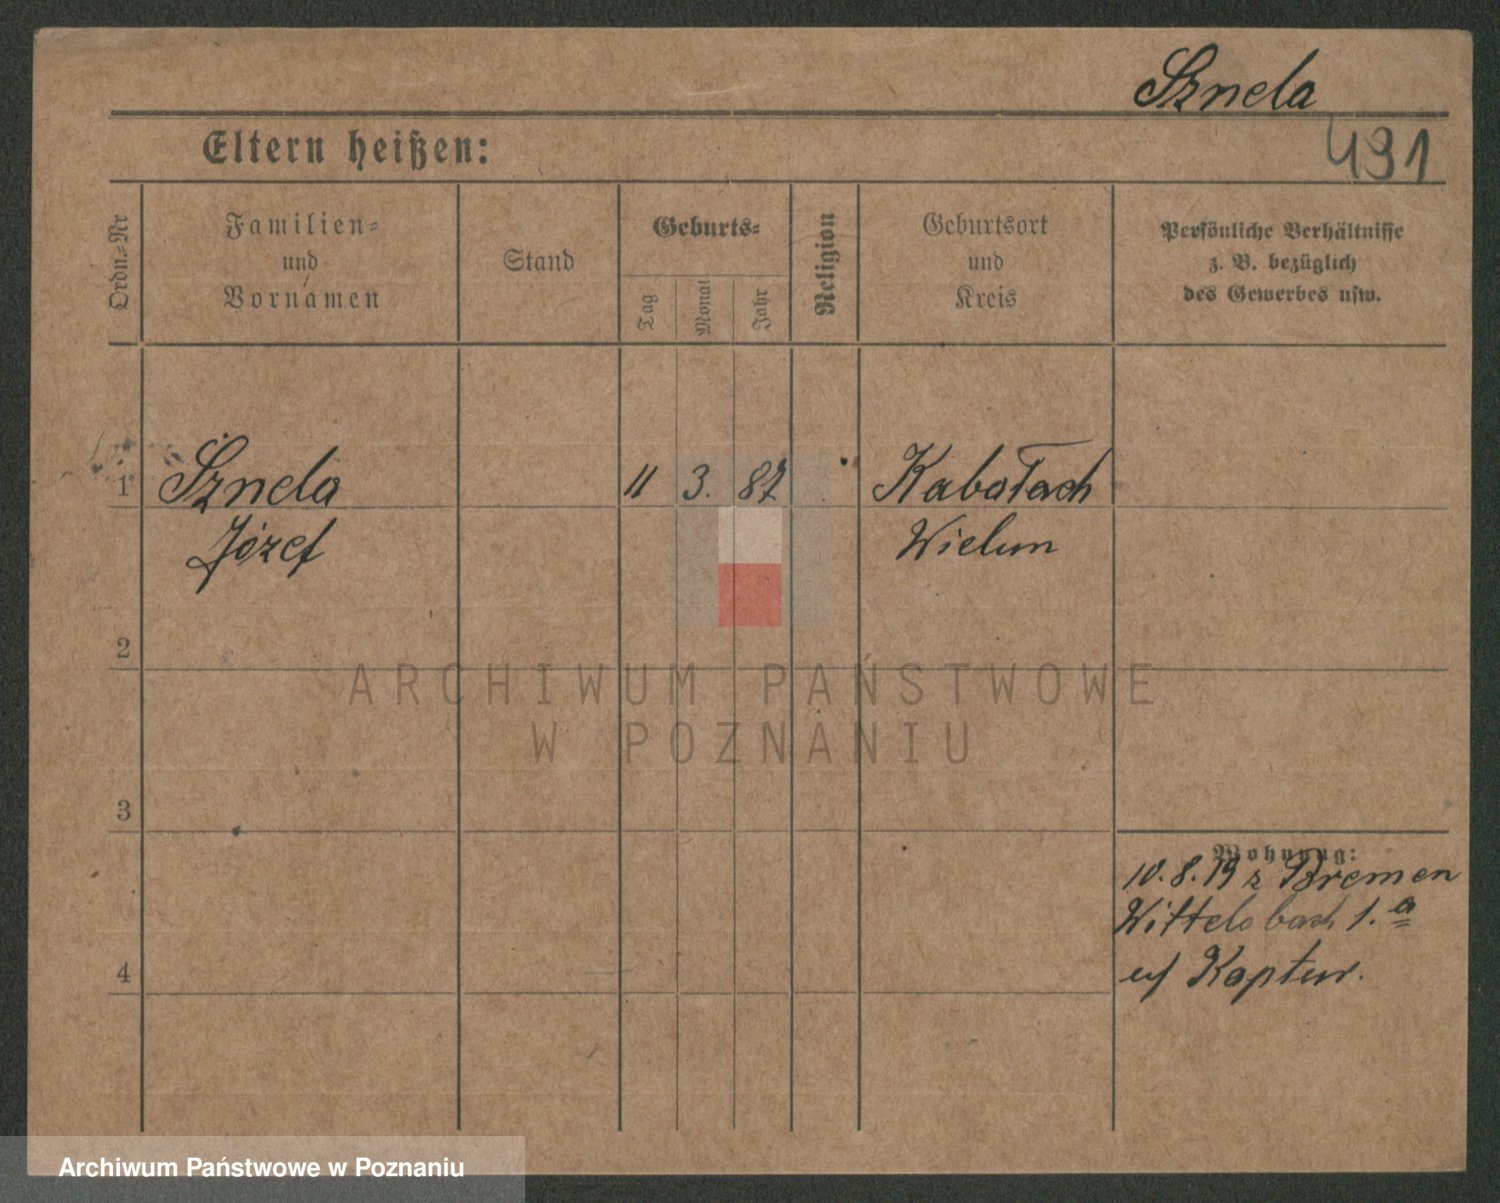 Sznela
Eltern heißen:
491
Ordn.-Nr
Familien=
und
Vornamen
Stand
Geburts=
Tag
Monat
Jahr
Religion
Geburtsort
und
Kreis
Persönliche Verhältnisse
z. B. bezüglich
des Gewerbes usw.
1 Sznela 11 3. 87 Kabatach
Józef Wielun
2
3
4
Wohnung:
10.8.19 z Bremen
Wittelsbach 1.a
Kaptur.
ARCHIWUM PAŃSTWOWE
W POZNANIU
Archiwum Państwowe w Poznaniu